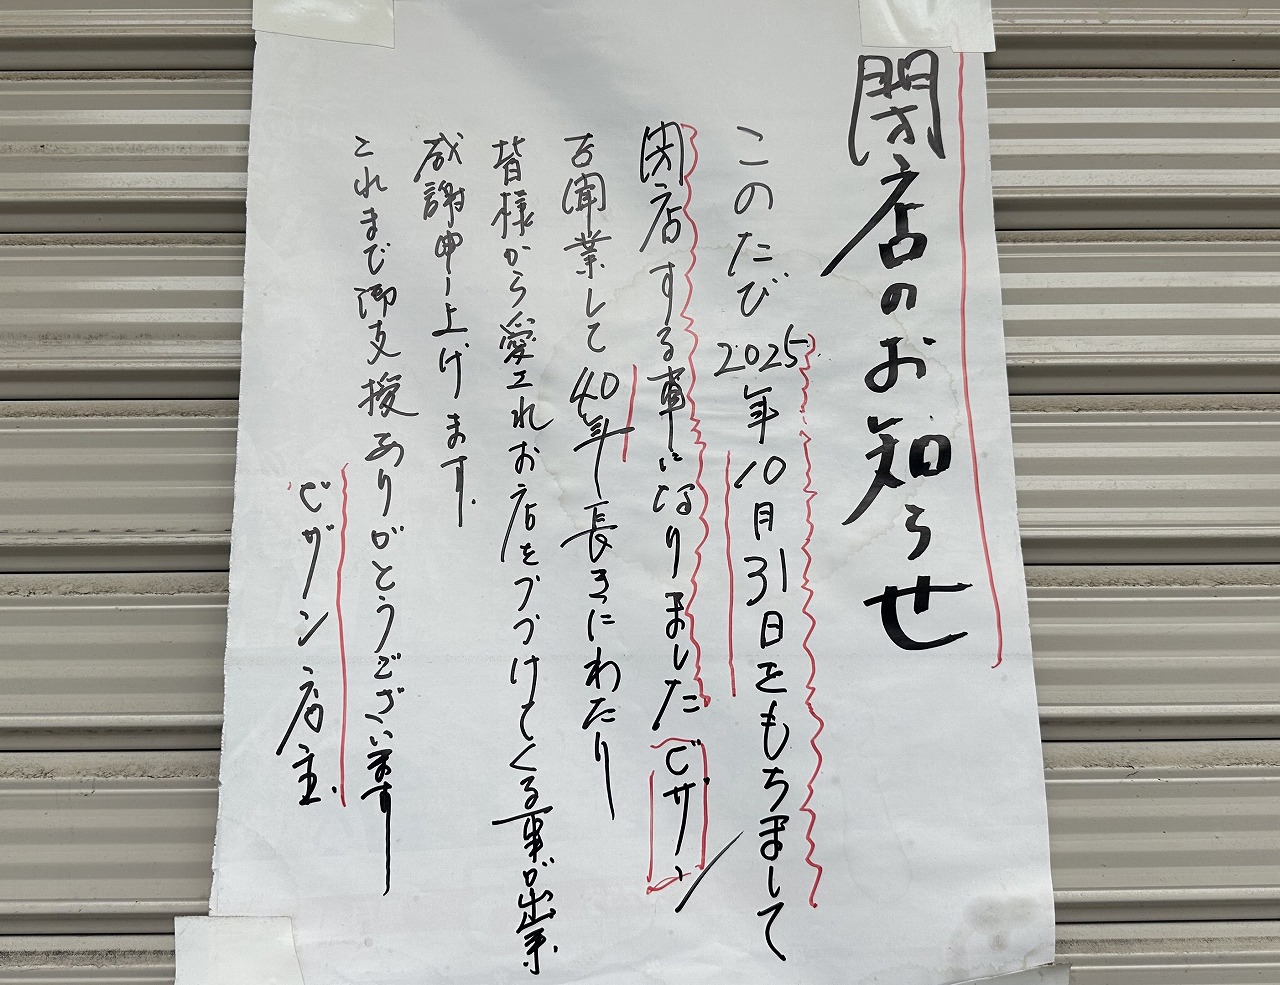 閉店のお知らせ
このたび2025年10月31日をもちまして
閉店する事になりましたビザン
古開業して40年長きにわたり
皆様から愛されお店をつづけてくる事が出来
感謝申し上げます.
これまで御支援ありがとうございます
ビザン店主.